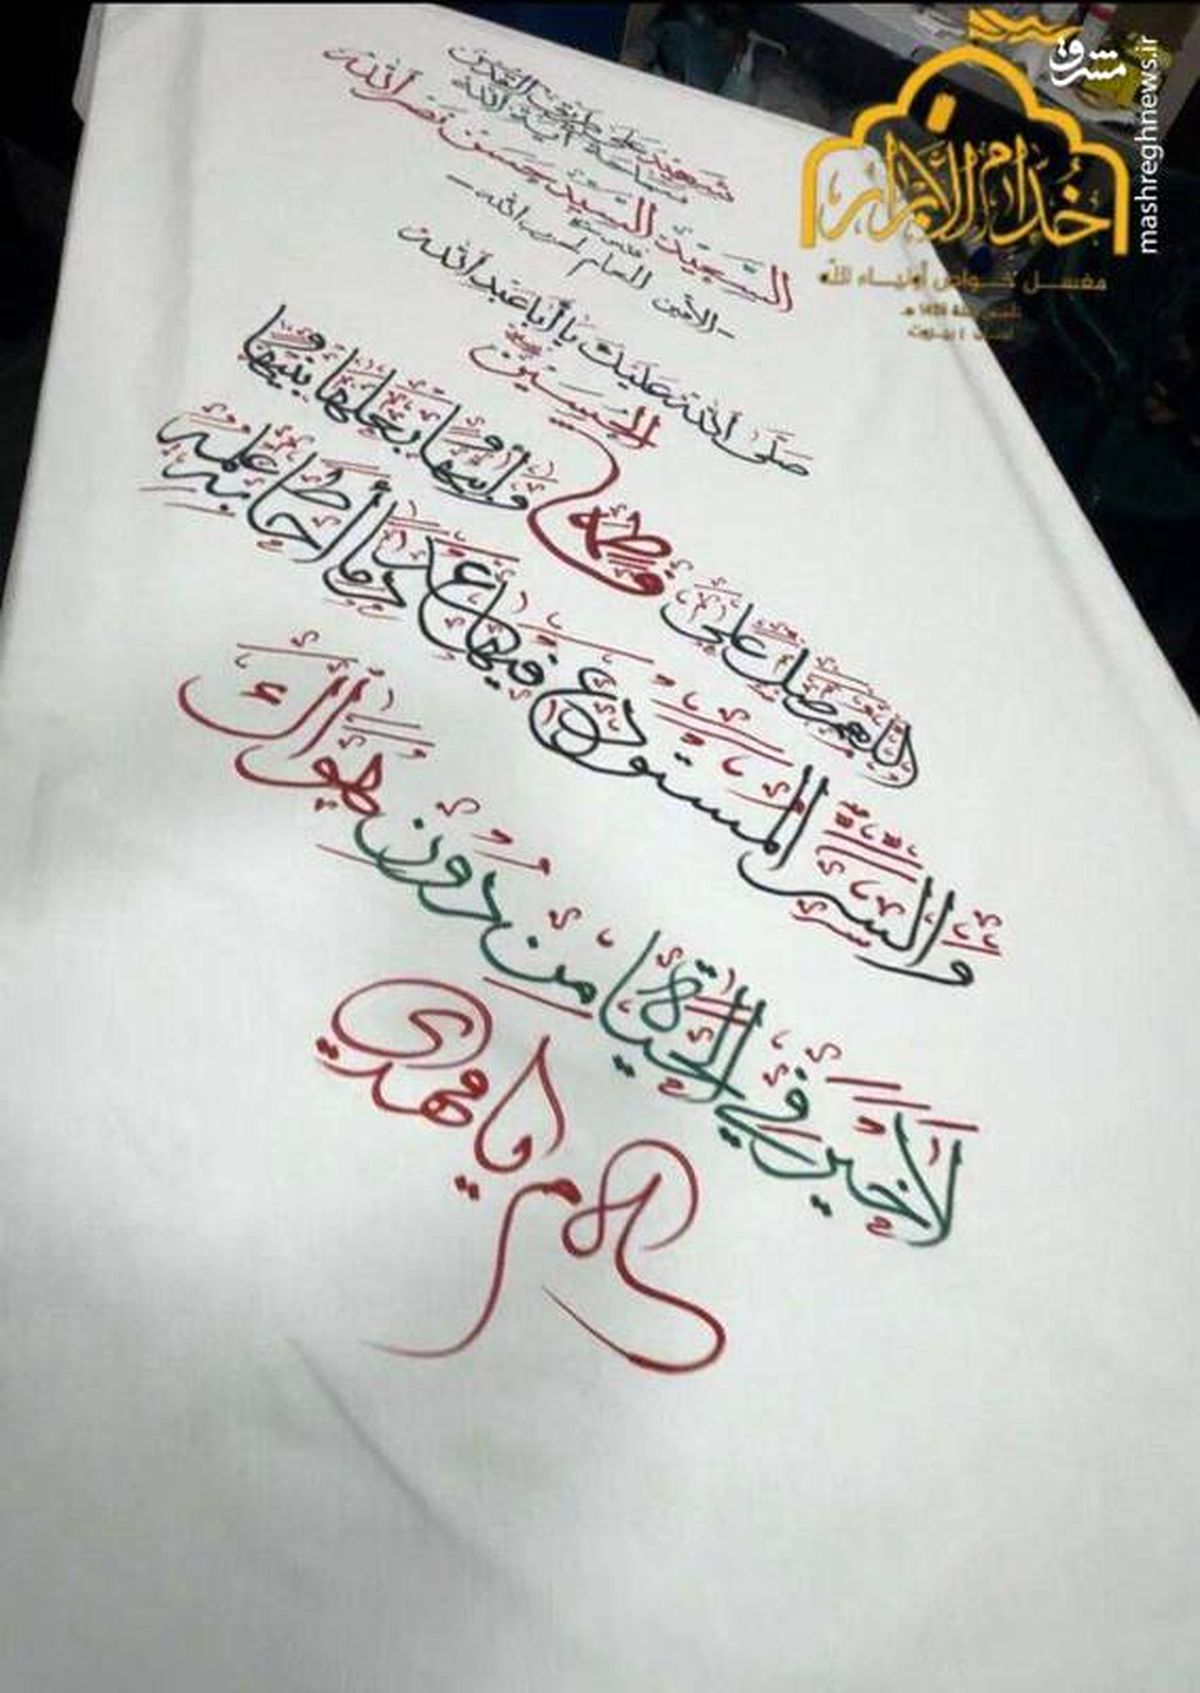 مشرق
mashreghnews.ir
خدام الأبرار
مغسل خواص أولياء الله
شهيد على طريق القدس
سماحة آية الله
السيد حسن نصر الله
الأمين العام لحزب الله
صلى الله عليك يا أبا عبد الله
الحسين
اللهم صل على فاطمة وأبيها وبعلها وبنيها و
والسر المستودع فيها عدد ما أحاط به علمك
لا خير في الحياة من دون هواك
يا مهدي